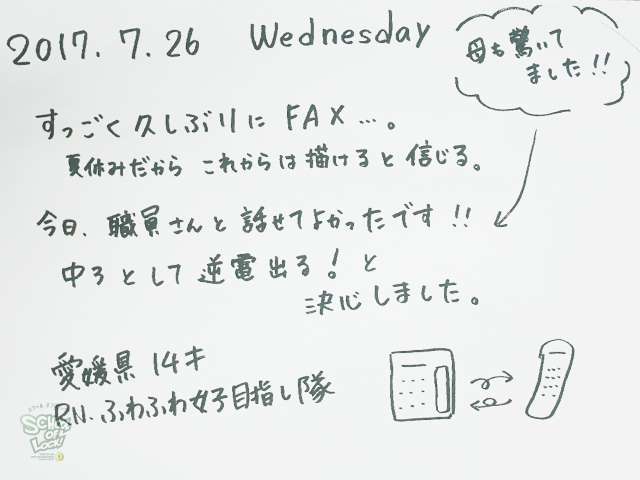 2017. 7. 26 Wednesday
母も驚いて
ました!!
すっごく久しぶりに FAX…。
夏休みだから これからは描けると信じる。
今日、職員さんと話せてよかったです!!
中3として逆電出る!と
決心しました。
愛媛県 14才
RN. ふわふわ女子目指し隊
SCHOOL
OF
LOCK!